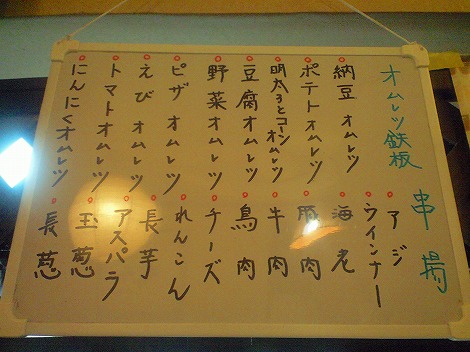 オムレツ鉄板
納豆オムレツ
ポテトオムレツ
明太子とコーンオムレツ
豆腐オムレツ
野菜オムレツ
ピザオムレツ
えびオムレツ
トマトオムレツ
にんにくオムレツ
串揚
アジ
ウインナー
海老
豚肉
牛肉
鳥肉
チーズ
れんこん
長芋
アスパラ
玉葱
長葱